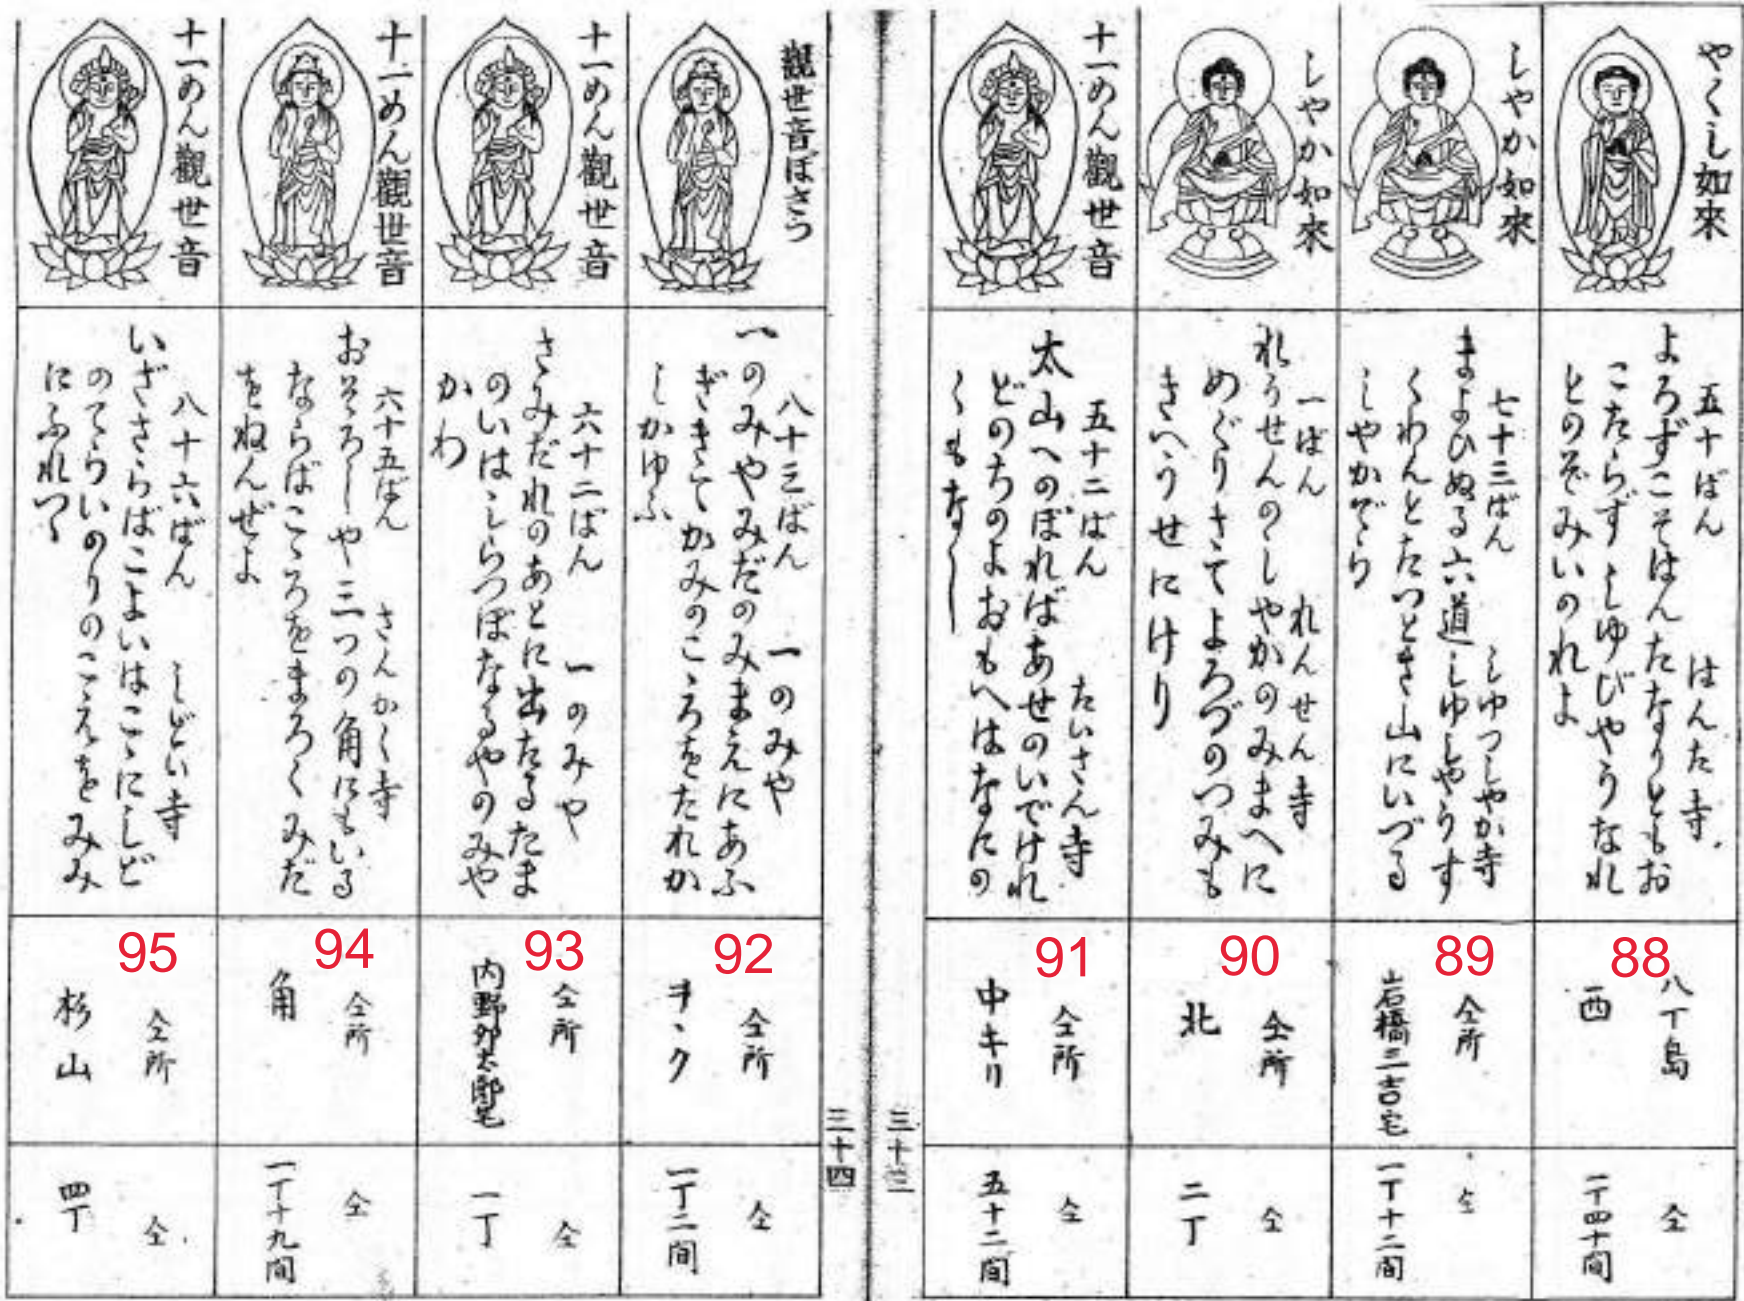 やくし如來
五十ばん　はんた寺
よろずこそはんたなりともお
こたらずしゆびやうなれ
とのぞみいのれよ
88
八丁島
西
仝
一丁四十間
しやか如來
七十三ばん　しゆつしやか寺
まよひぬる六道しゆしやうす
くわんとたつとき山にいづる
しやかでら
89
仝所
岩橋三吉宅
仝
一丁十二間
しやか如來
一ばん　れんせん寺
れうせんのしやかのみまへに
めぐりきてよろづのつみも
きへうせにけり
90
仝所
北
仝
二丁
十一めん觀世音
五十二ばん　たいさん寺
太山へのぼればあせのいでけれ
どのちのよおもへはなにの
くもなし
91
仝所
中キリ
仝
五十二間
三十三
三十四
觀世音ぼさつ
八十三ばん　一のみや
一のみやみだのみまえにあふ
ぎきてかみのこゝろをたれか
しかゆふ
92
仝所
ヰヽク
仝
一丁二間
十一めん觀世音
六十二ばん　一のみや
さみだれのあとに出たるたま
のいはしらつぼなるやのみや
かわ
93
仝所
内野卯太郎宅
仝
一丁
十一めん觀世音
六十五ばん　さんかく寺
おそろしや三つの角にもいる
ならばこゝろをまろくみだ
をねんぜよ
94
仝所
角
仝
一丁十九間
十一めん觀世音
八十六ばん　しどい寺
いざさらばこよいはこゝにしど
のてらいのりのこえをみみ
にふれつゝ
95
仝所
杉山
仝
四丁